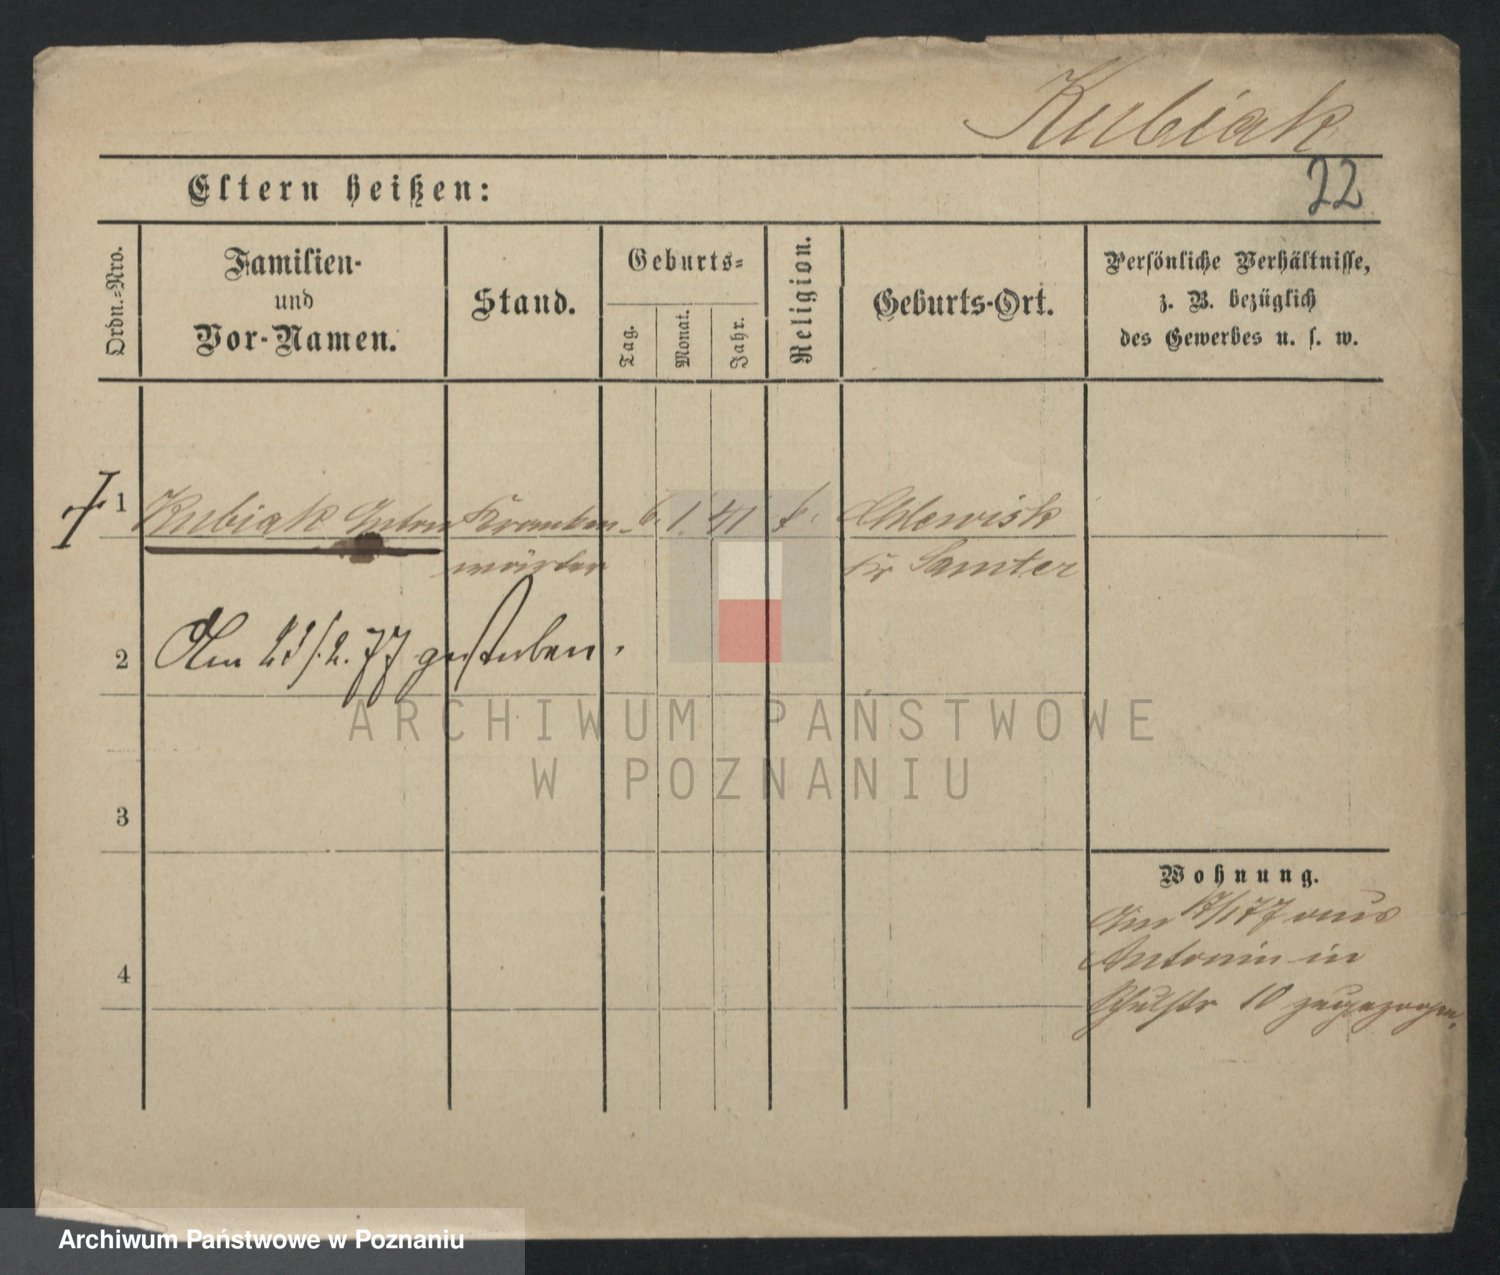 Kubiak
22
Eltern heißen:
Ordn.-Nro.
Familien-
und
Vor-Namen.
Stand.
Geburts-
Tag.
Monat.
Jahr.
Religion.
Geburts-Ort.
Persönliche Verhältnisse,
z. B. bezüglich
des Gewerbes u. s. w.
1 Kubiak Kranken- 6. 1. 41 k. Chlewisk
wärter Kr Samter
2 Am 23/2.77 gestorben.
3
4
Wohnung.
Am 17/1 77 aus
Antonin in
Schulstr 10 zugezogen.
ARCHIWUM PAŃSTWOWE
W POZNANIU
Archiwum Państwowe w Poznaniu